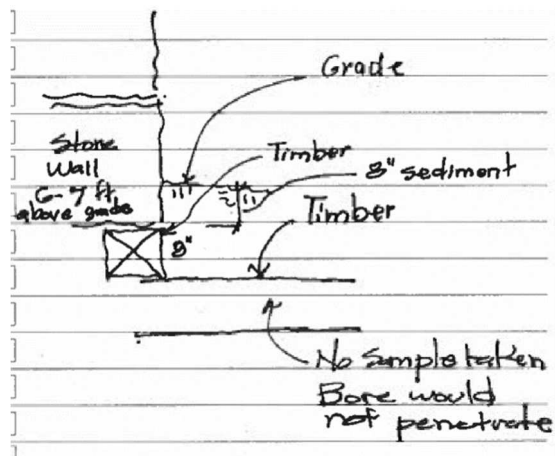 Grade
Stone
Wall
6-7 ft
above grade
Timber
8" sediment
Timber
8"
No Sample taken
Bore would
not penetrate